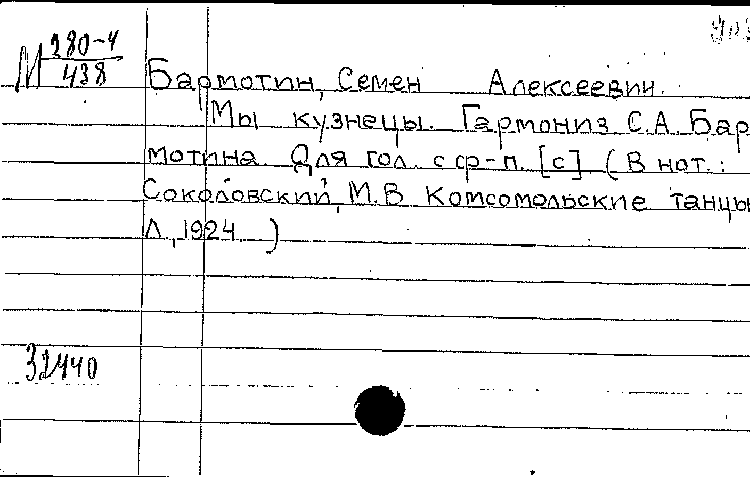 М 280-4
438
Бармотин, Семен Алексеевич.
Мы кузнецы. Гармониз. С.А. Бар
мотина. Для гол. с ф-п. [c] (В нот.:
Соколовский, М.В. Комсомольские танцы
Л., 1924. )
32440